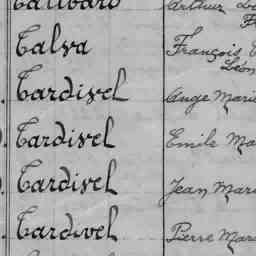 Talva François
Léon
Tardivel Ange Marie
Tardivel Emile Ma
Tardivel Jean Mari
Tardivel Pierre Mar